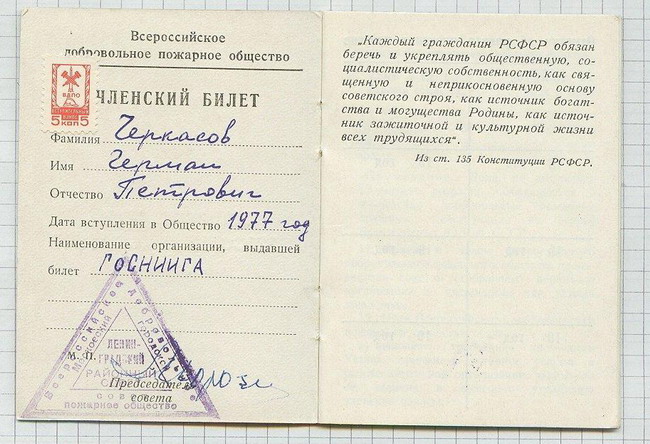 Всероссийское
добровольное пожарное общество
ВДПО
5 КОП 5
ЧЛЕНСКИЙ БИЛЕТ
Фамилия Черкасов
Имя Герман
Отчество Петрович
Дата вступления в Общество 1977 год
Наименование организации, выдавшей
билет ГОСНИИГА
Всероссийское добровольное
пожарное общество
Московский
городской
ЛЕНИН-
ГРАД-КИЙ
РАЙОННЫЙ
СОВЕТ
М. П.
Председатель
совета
„Каждый гражданин РСФСР обязан
беречь и укреплять общественную, со-
циалистическую собственность, как свя-
щенную и неприкосновенную основу
советского строя, как источник богат-
ства и могущества Родины, как источ-
ник зажиточной и культурной жизни
всех трудящихся“.
Из ст. 135 Конституции РСФСР.